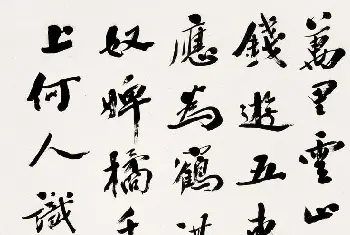 萬里雲山
錢遊五
應為鶴
奴婢橘千
上何人識